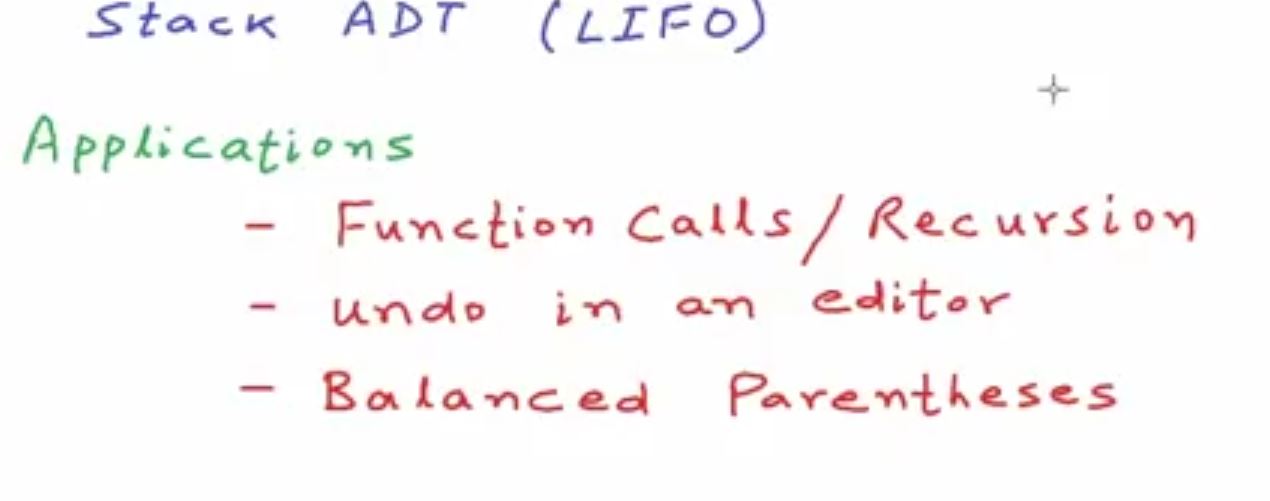 Stack ADT (LIFO)
Applications
- Function Calls/Recursion
- undo in an editor
- Balanced Parentheses